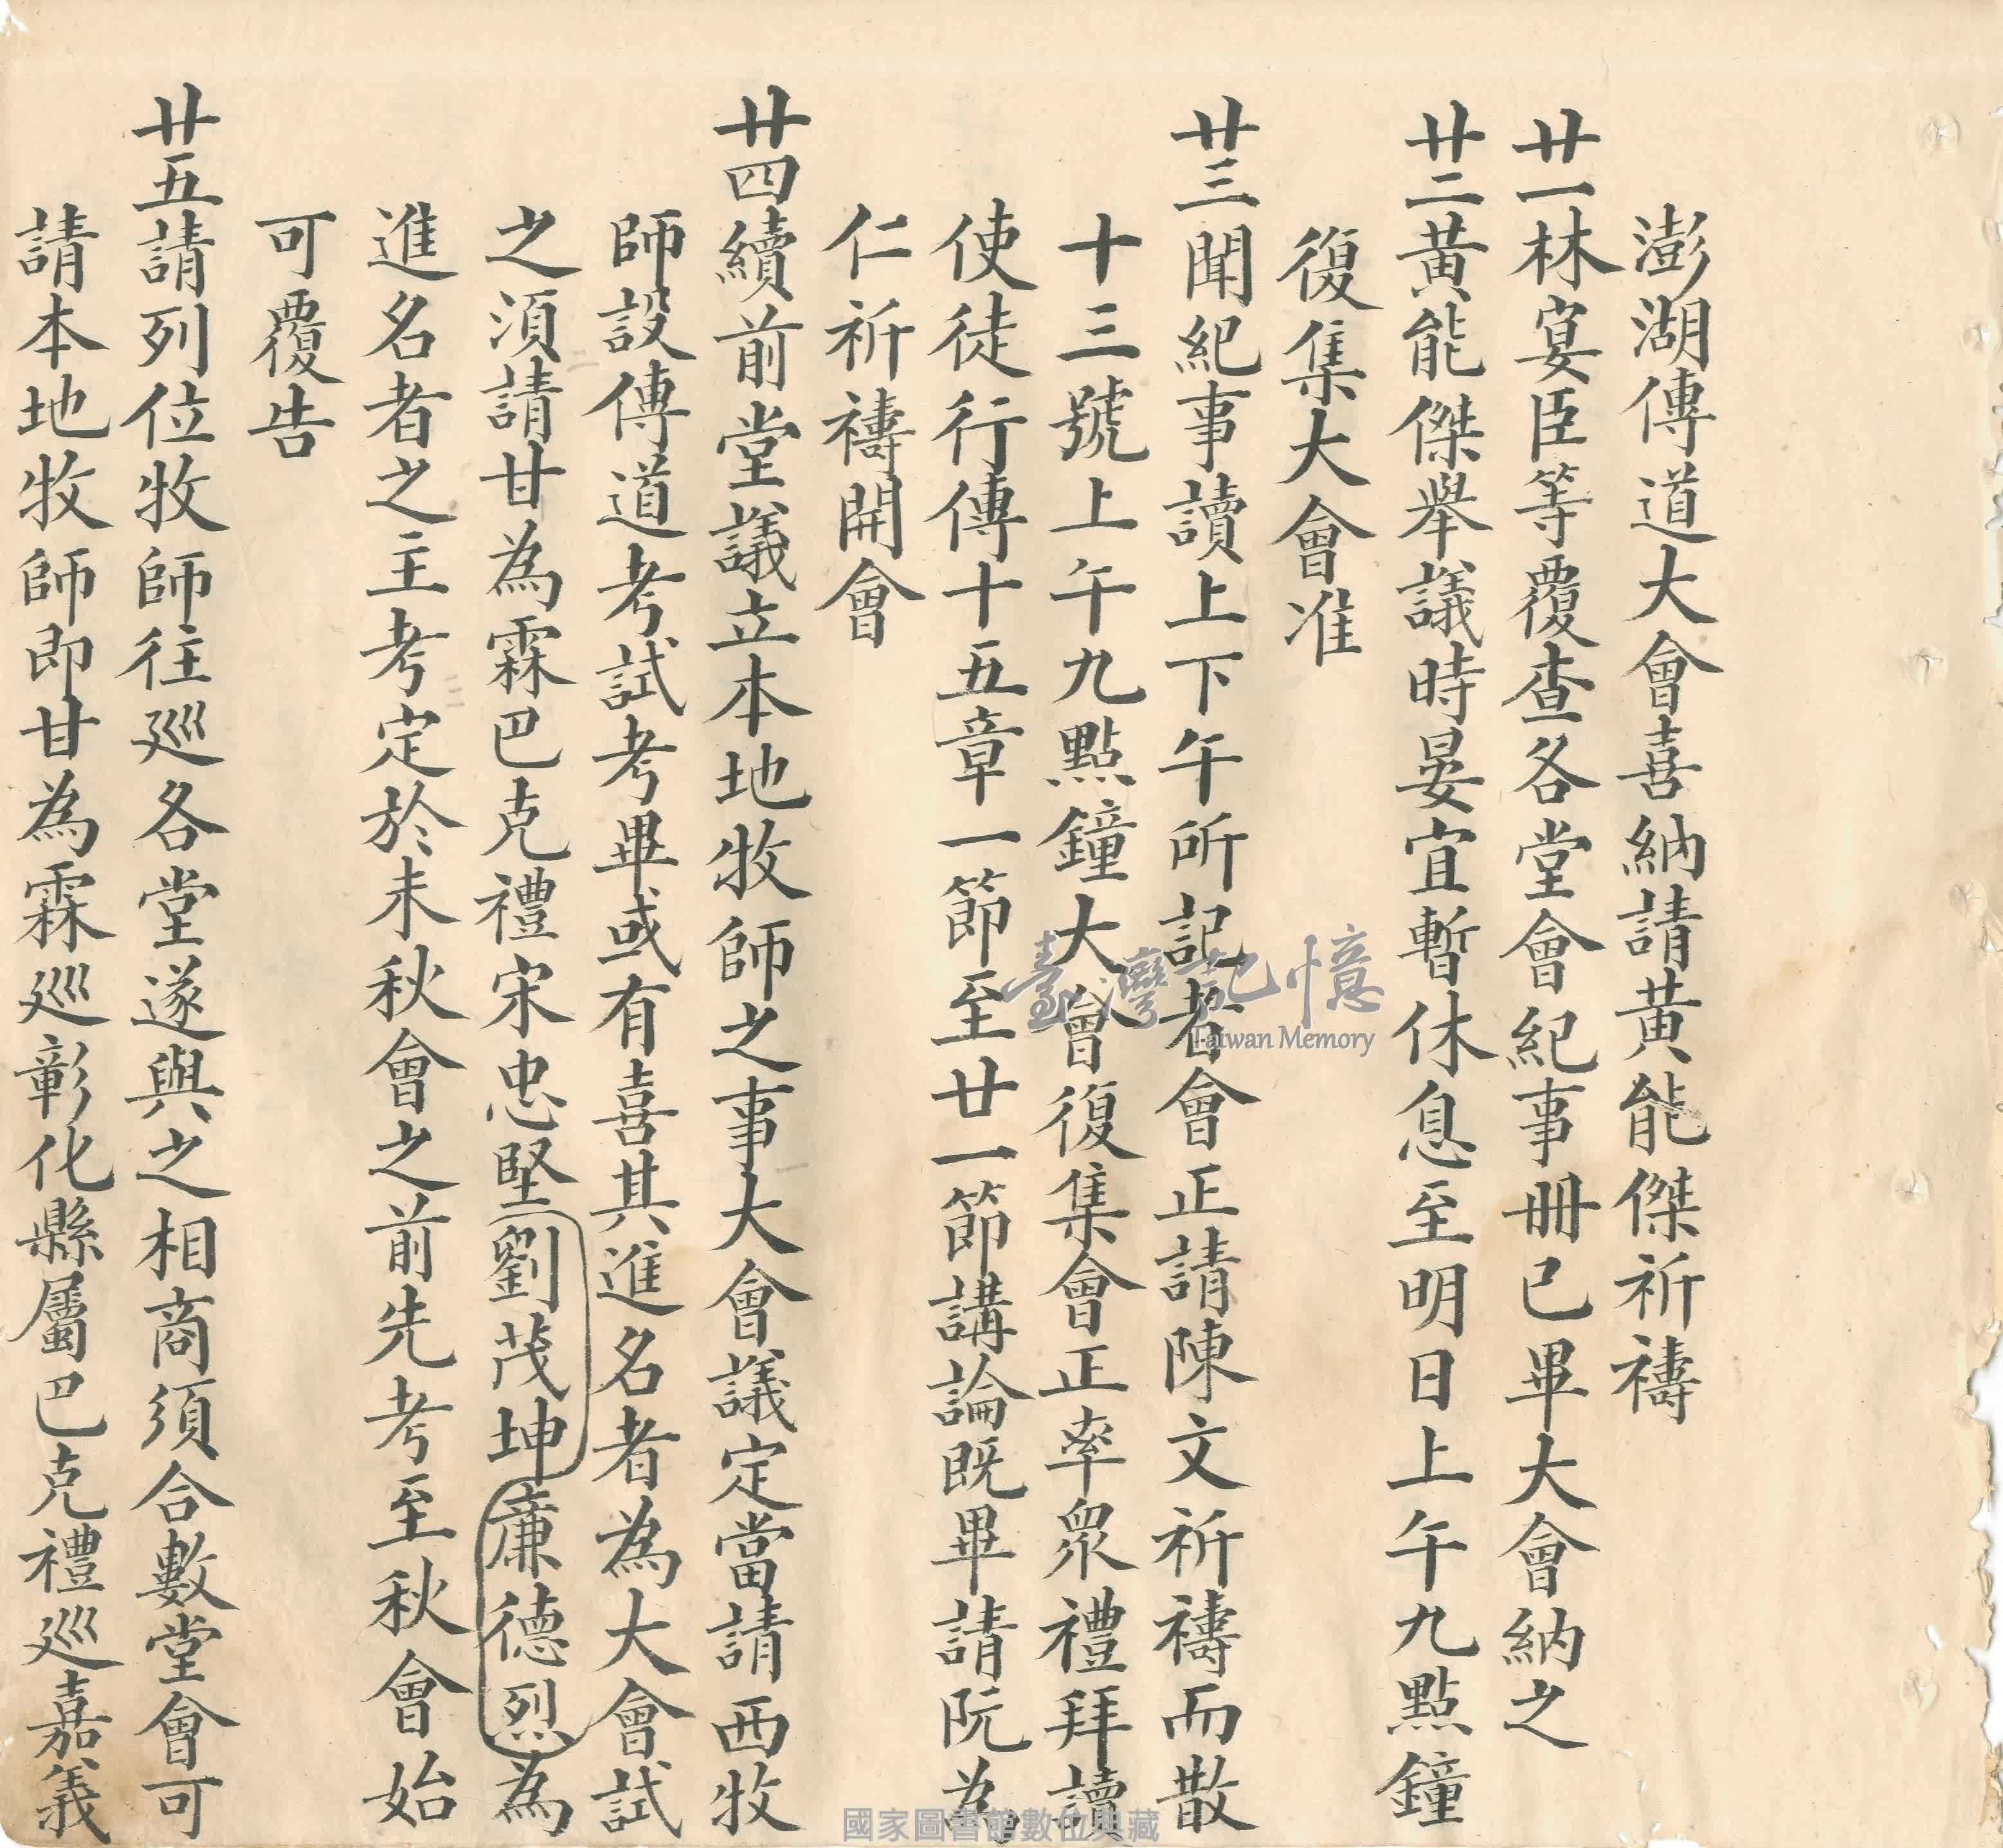 澎湖傳道大會喜納請黃能傑祈禱
廿一林宴臣等覆查各堂會紀事冊已畢大會納之
廿二黃能傑舉議時晏宜暫休息至明日上午九點鐘
復集大會准
廿三聞紀事讀上下午所記者會正請陳文祈禱而散
十三號上午九點鐘大會復集會正率眾禮拜讀
使徒行傳十五章一節至廿一節講論既畢請阮為
仁祈禱開會
廿四續前堂議立本地牧師之事大會議定當請西牧
師設傳道考試考畢或有喜其進名者為大會試
之須請甘為霖巴克禮宋忠堅劉茂坤廉德烈為
進名者之主考定於未秋會之前先考至秋會始
可覆告
廿五請列位牧師往巡各堂遂與之相商須合數堂會可
請本地牧師即甘為霖巡彰化縣屬巴克禮巡嘉義
臺灣記憶
Taiwan Memory
國家圖書館數位典藏